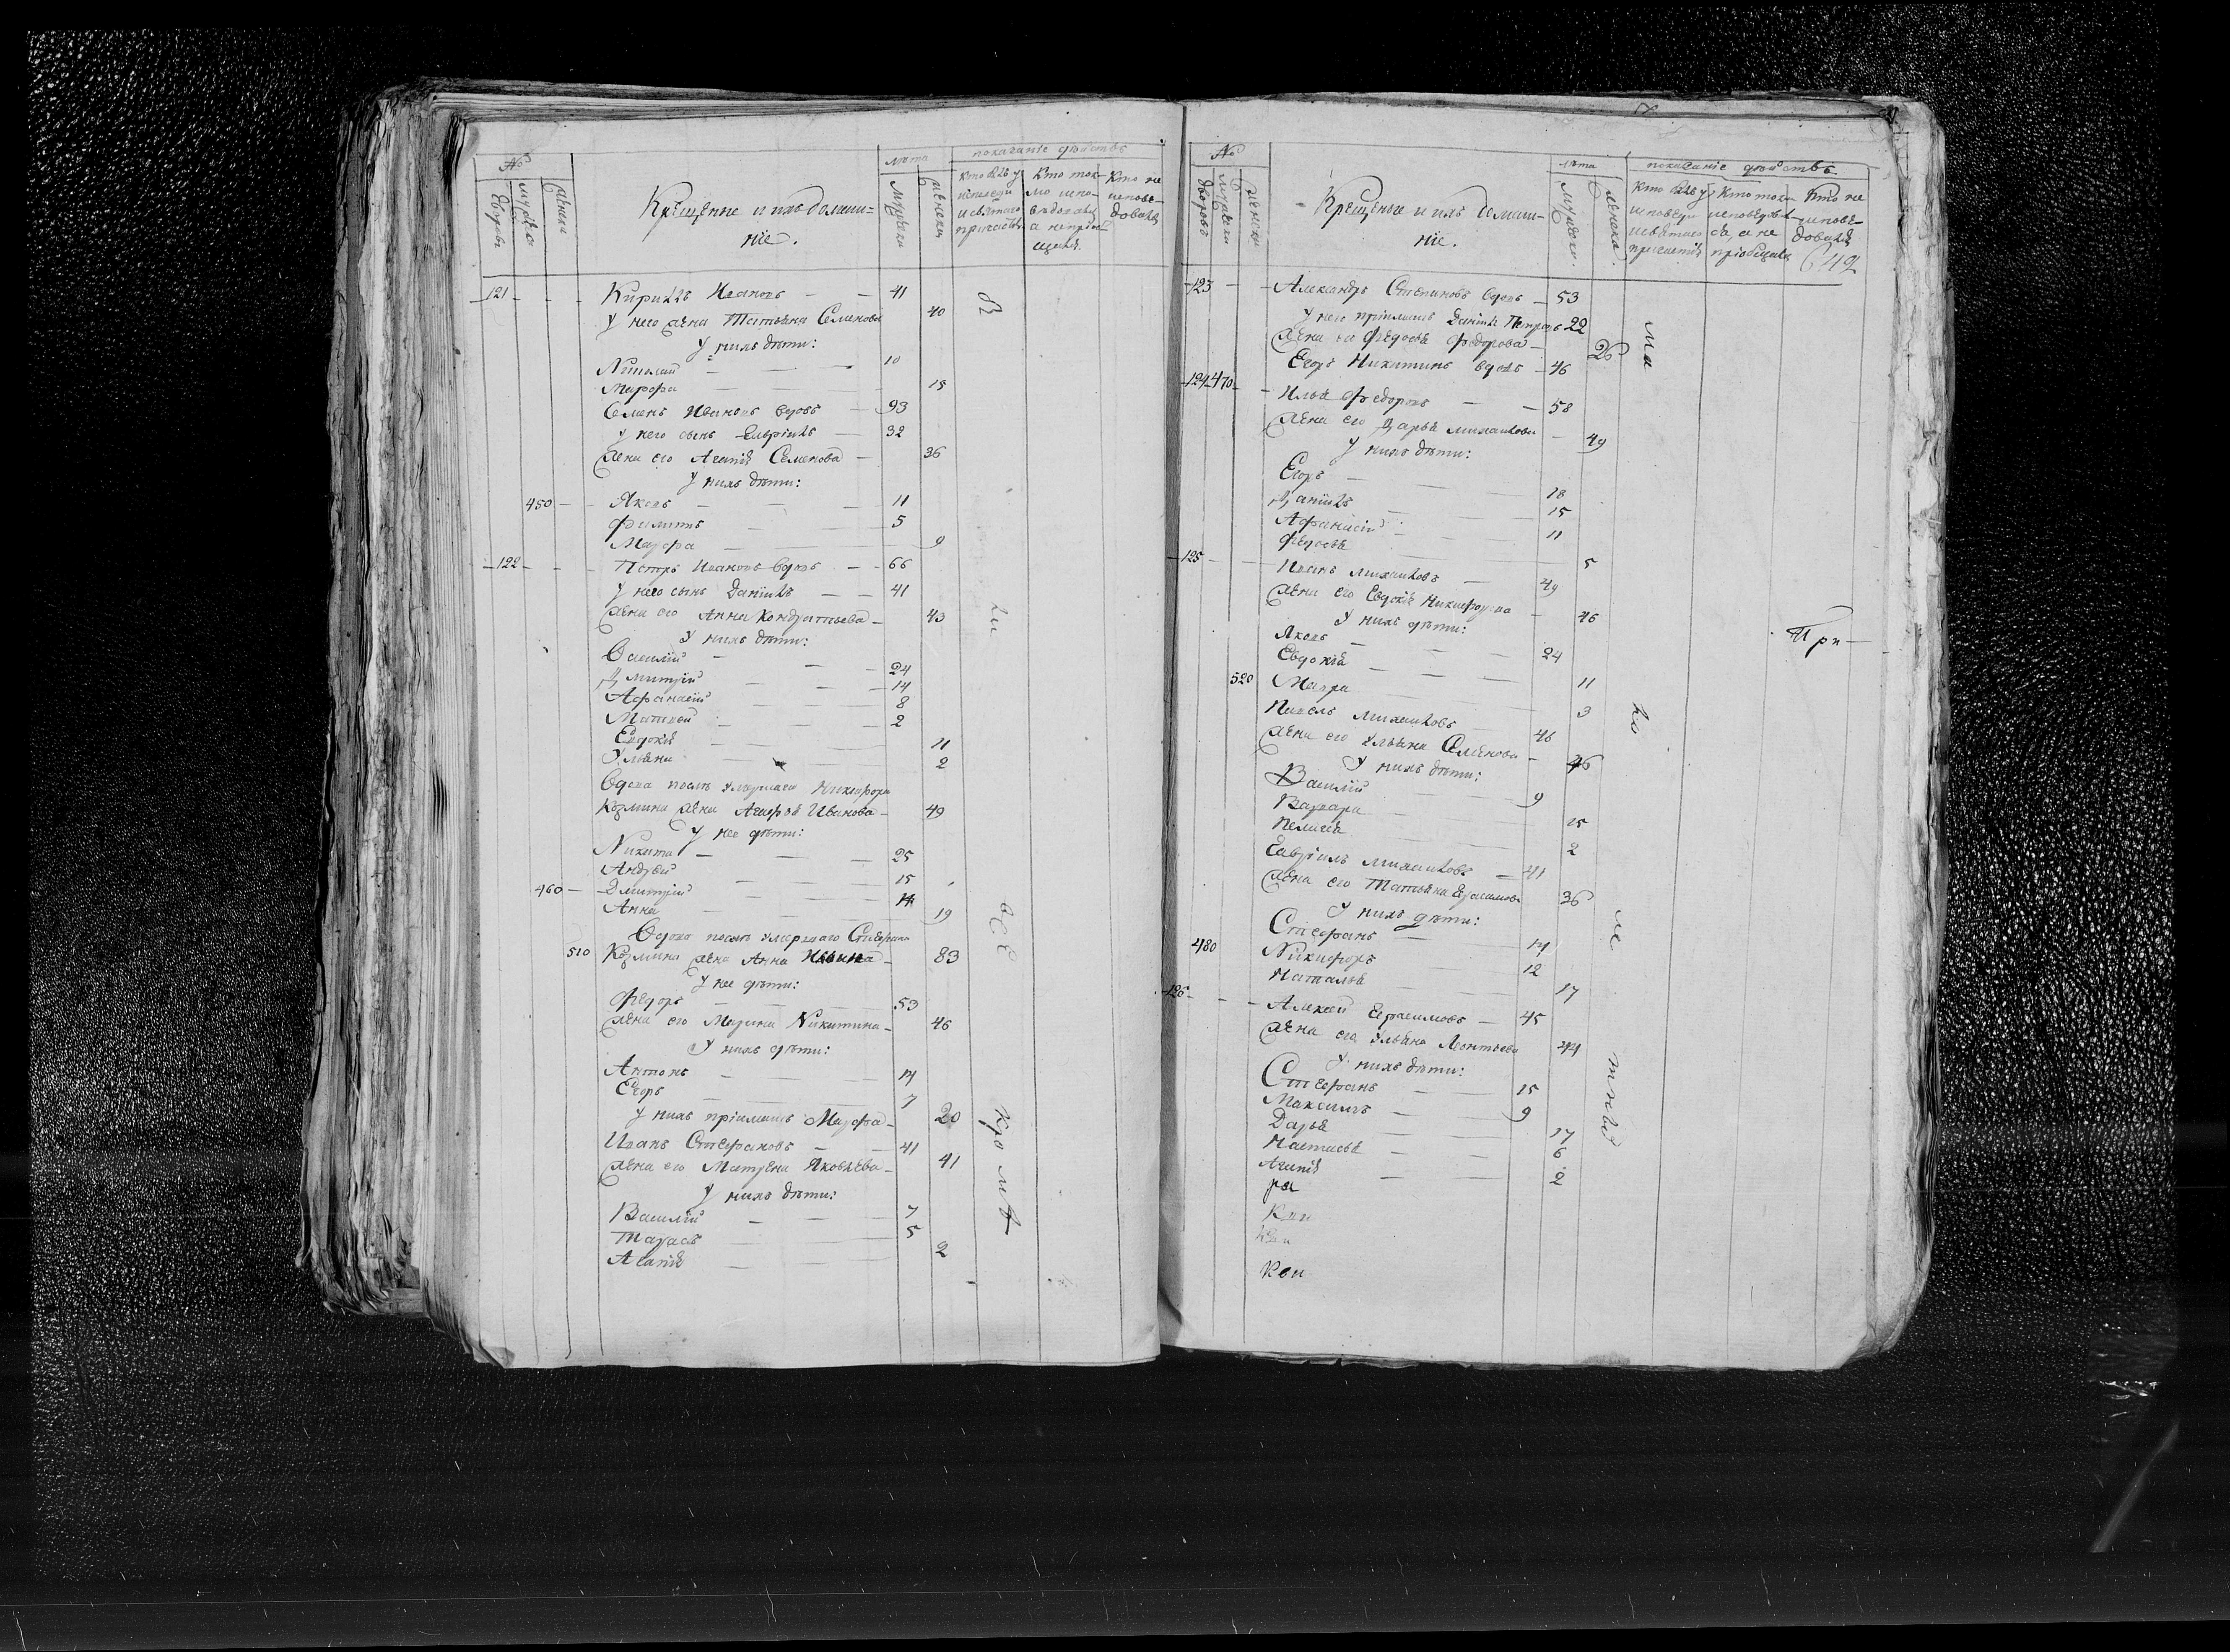 №
дворовъ
мужеска
женска
Крещеные и ихъ домаш=
нïе.
лѣта
мужеска
женска
показанïе дѣйствъ
Кто былъ у исповеди и святаго причастïя
Кто ток-мо испо-ведовался а не прïоб-щался
Кто не испове-довался
121 Кирилъ Ивановъ 41
У него жена Татьяна Семенова 40
У нихъ дѣти:
Николай 10
Марфа 15
Семенъ Ивановъ вдовъ 93
У него сынъ Гаврïилъ 32
жена его Агапïя Семенова 36
У нихъ дѣти:
450 Яковъ 11
Филиппъ 5
Марфа 9
122 Петръ Ивановъ вдовъ 66
У него сынъ Данïилъ 41
жена его Анна Кондратьева 43
У нихъ дѣти:
Василïй 24
Дмитрïй 14
Афанасïй 8
Матвей 2
Евдокïя 11
Ульяна 2
Вдова послѣ умершаго Никифора
Козмина жена Агафья Иванова 49
У нее дѣти:
Никита 25
Андрей 15
460 Дмитрïй 14
Анна 19
Вдова послѣ умершаго Стефана
510 Козмина жена Анна 83
У нее дѣти:
Федоръ 53
жена его Марина Никитина 46
У нихъ дѣти:
Антонъ 14
Егоръ 7
У нихъ прïимышъ Марфа 20
Иванъ Стефановъ 41
жена его Матрена Яковлева 41
У нихъ дѣти:
Василïй 7
Тарасъ 5
Агапïя 2
ли
все
кромѣ
№
дворовъ
мужеска
женска
Крещеные и ихъ домаш-
нïе.
лѣта
мужеска.
женска.
показанïе дѣйствъ
Кто былъ у исповеди и святаго причастïя
Кто ток-мо исповедовал-ся, а не прïобщался
Кто не испове-довался
642
123 Александръ Степановъ вдовъ 53
У него прïимышъ Данïилъ Петровъ 22
жена его Федосья Федорова 26
Егоръ Никитинъ вдовъ 46
124 470 Илья Федоровъ 58
жена его Дарья Михайлова 49
У нихъ дѣти:
Егоръ 18
Данïилъ 15
Афанасïй 11
Федосья 5
125 Иванъ Михайловъ 49
жена его Евдокïя Никифорова 46
У нихъ дѣти:
Яковъ 24
Евдокïя 11
520 Мавра 3
Павелъ Михайловъ 46
жена его Ульяна Семенова 46
У нихъ дѣти:
Василïй 9
Варвара 15
Пелагея 2
Гаврïилъ Михайловъ 41
жена его Татьяна Герасимова 36
У нихъ дѣти:
Стефанъ 14
480 Никифоръ 12
Наталья 17
126 Алексей Герасимовъ 45
жена его Ульяна Леонтьева 44
У нихъ дѣти:
Стефанъ 15
Максимъ 9
Дарья 17
Настасья 6
Агапïя 2
ма
ло
ле
тныхъ
При-